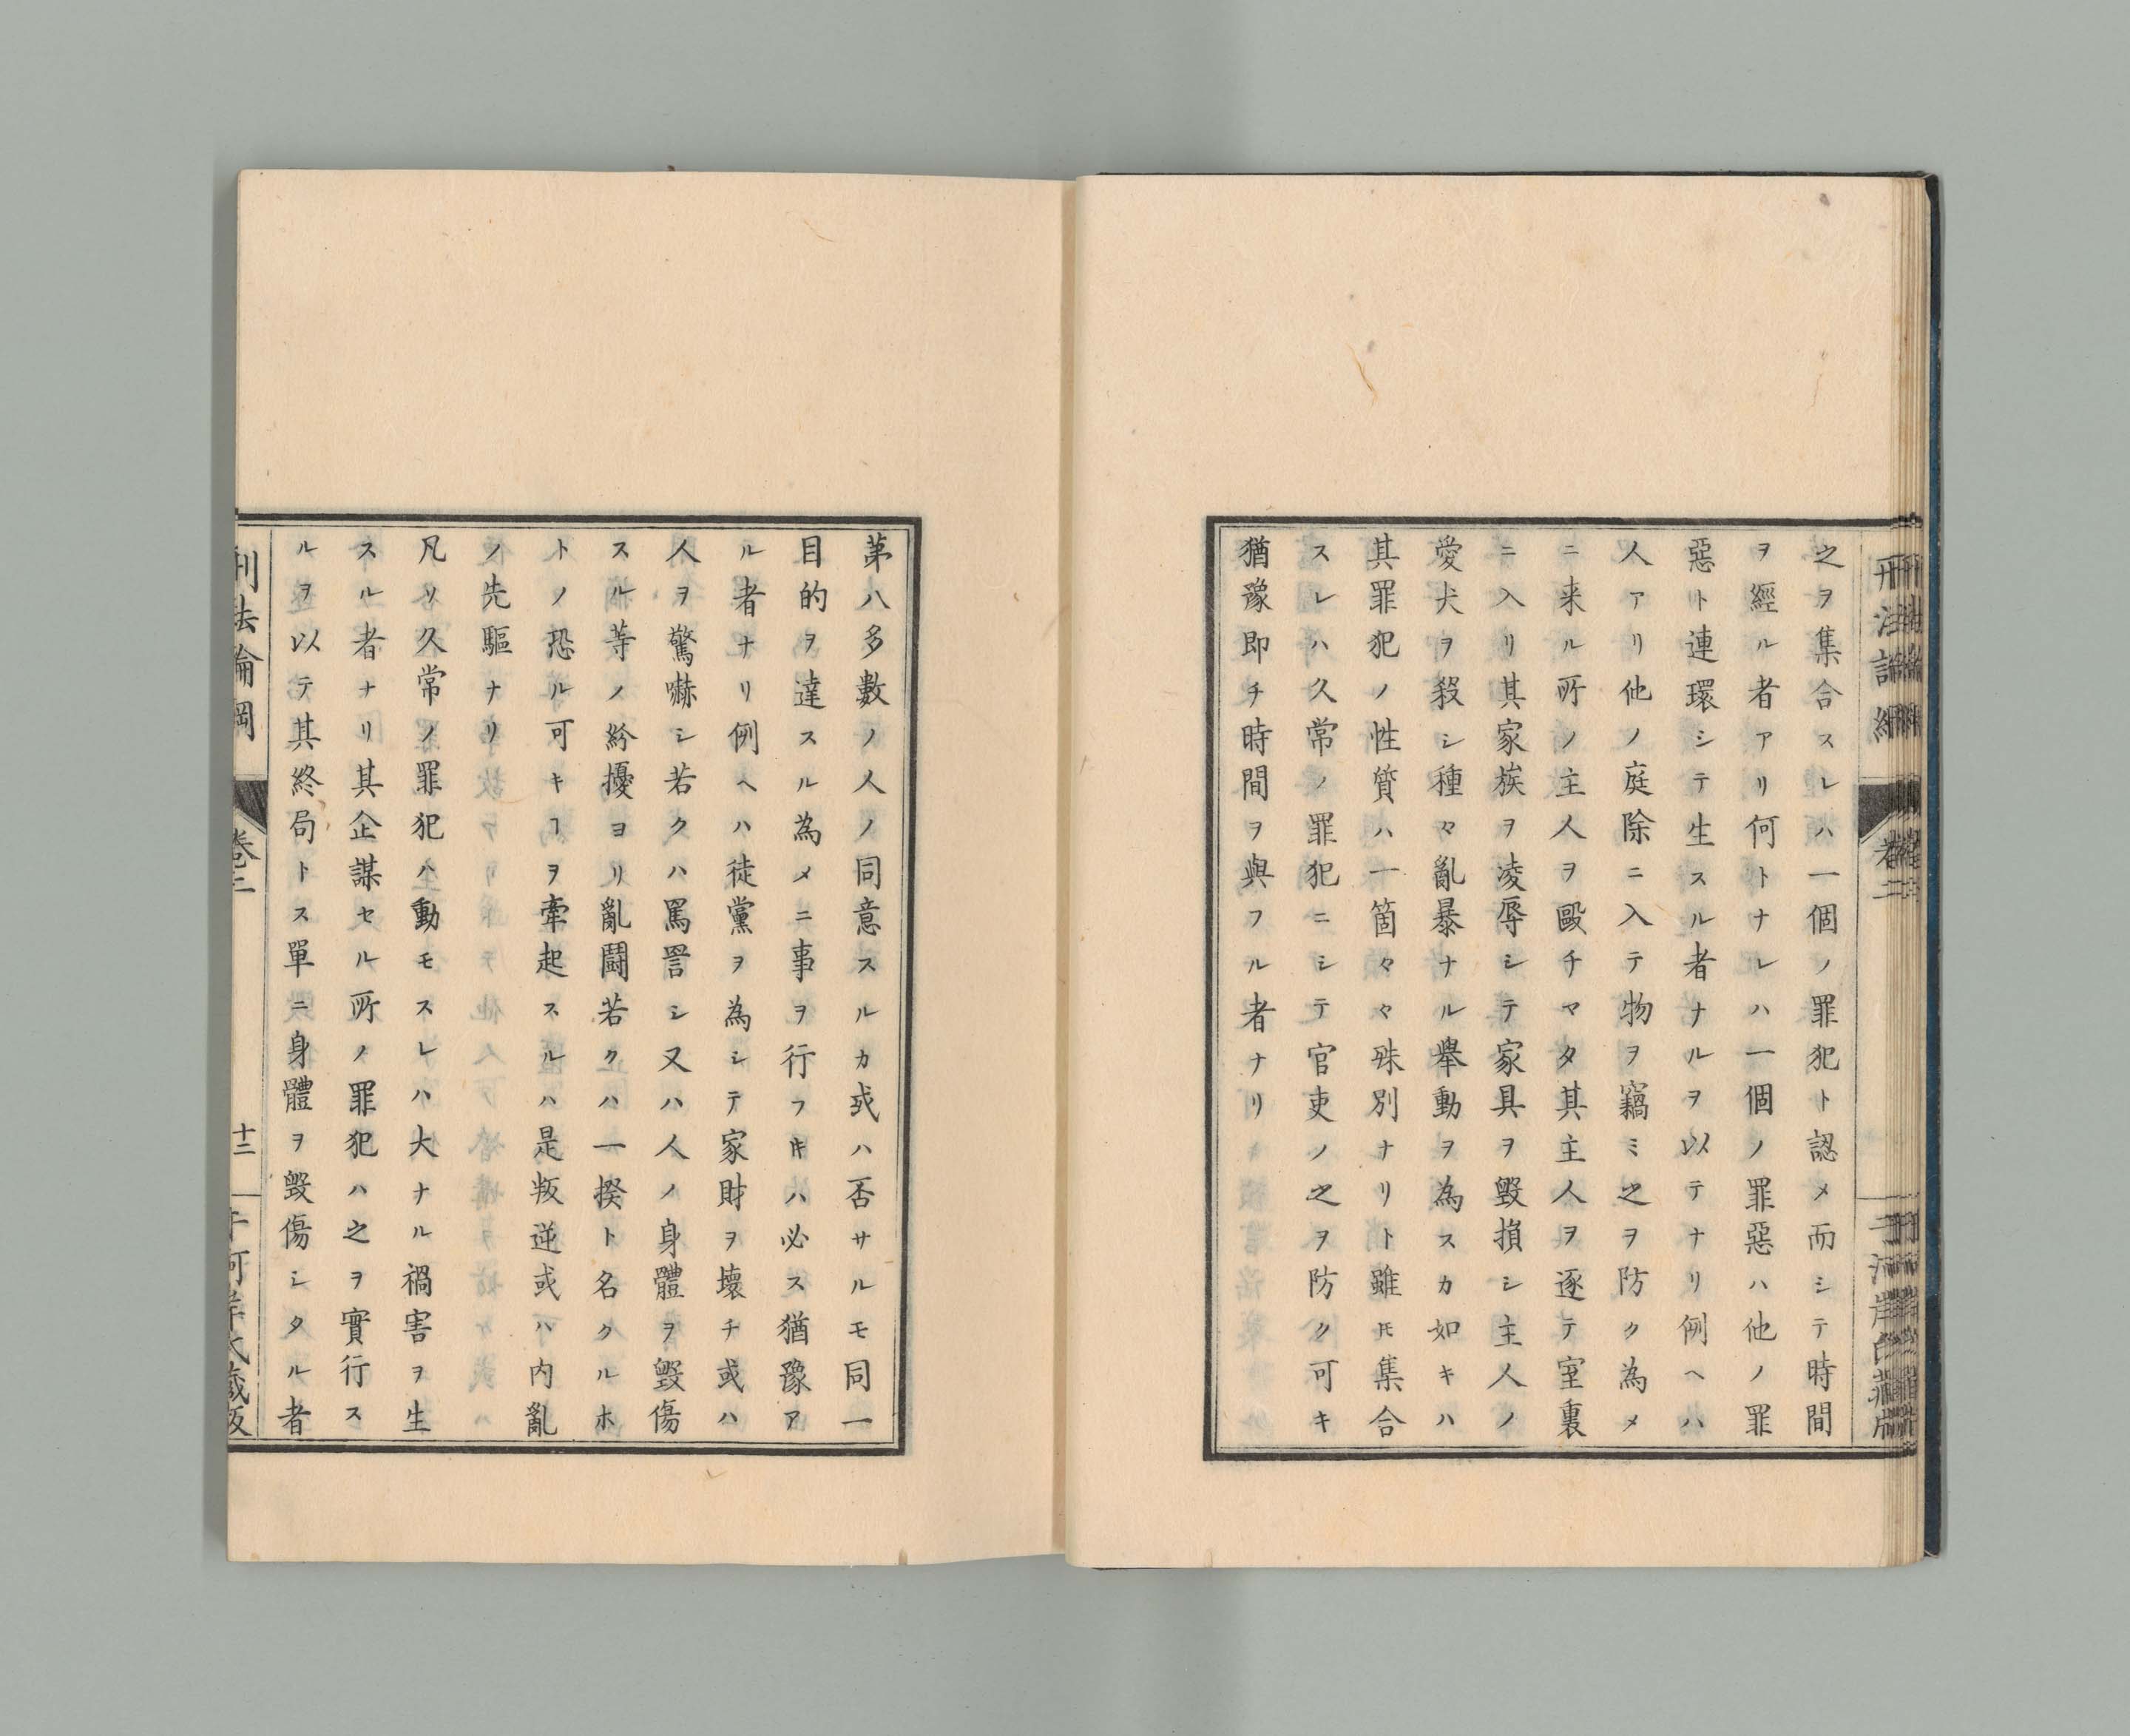 之ヲ集合スレハ一個ノ罪犯ト認メ而シテ時間
ヲ經ル者アリ何トナレハ一個ノ罪惡ハ他ノ罪
惡ト連環シテ生スル者ナルヲ以テナリ例ヘハ
人アリ他ノ庭除ニ入テ物ヲ竊ミ之ヲ防ク為メ
ニ来ル所ノ主人ヲ毆チマタ其主人ヲ逐テ室裏
ニ入リ其家族ヲ凌辱シテ家具ヲ毀損シ主人ノ
愛犬ヲ殺シ種々亂暴ナル舉動ヲ為スカ如キハ
其罪犯ノ性質ハ一箇々々殊別ナリト雖𪜈集合
スレハ久常ノ罪犯ニシテ官吏ノ之ヲ防ク可キ
猶豫即チ時間ヲ與フル者ナリ
苐八多數ノ人ノ同意スルカ或ハ否サルモ同一
目的ヲ達スル為メニ事ヲ行フキハ必ス猶豫ア
ル者ナリ例ヘハ徒黨ヲ為シテ家財ヲ壞チ或ハ
人ヲ驚嚇シ若クハ罵詈シ又ハ人ノ身體ヲ毀傷
スル等ノ紛擾ヨリ亂鬪若クハ一揆ト名クルホ
トノ恐ル可キヿヲ牽起スルハ是叛逆或ハ内亂
ノ先驅ナリ
凡ソ久常ノ罪犯ハ動モスレハ大ナル禍害ヲ生
スル者ナリ其企謀セル所ノ罪犯ハ之ヲ實行ス
ルヲ以テ其終局トス單ニ身體ヲ毀傷シタル者
刑法論綱 卷二 十二